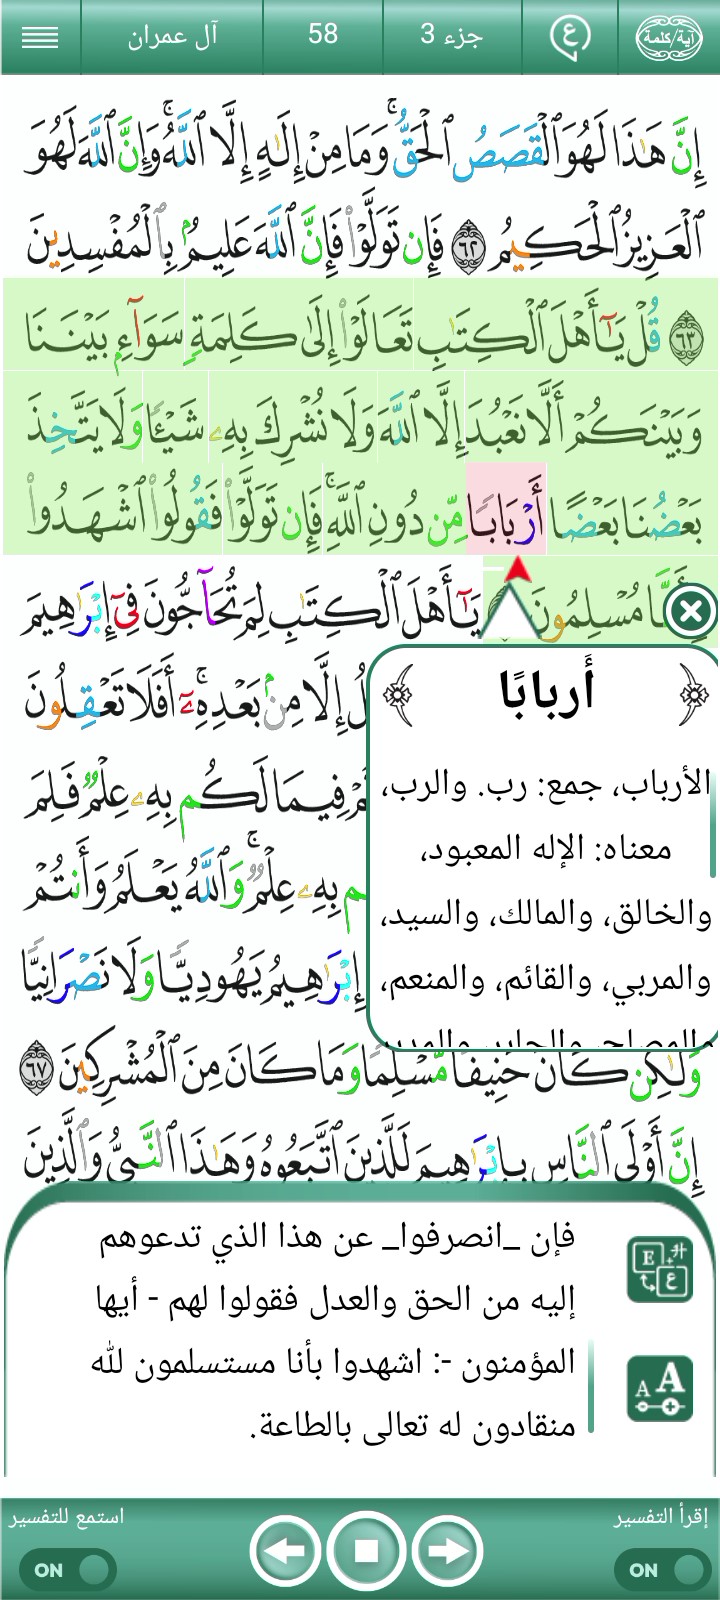 آية/كلمة
ع
جزء 3
58
آل عمران
إِنَّ هَٰذَا لَهُوَ ٱلْقَصَصُ ٱلْحَقُّ ۚ وَمَا مِنْ إِلَٰهٍ إِلَّا ٱللَّهُ ۚ وَإِنَّ ٱللَّهَ لَهُوَ
ٱلْعَزِيزُ ٱلْحَكِيمُ ٦٢ فَإِن تَوَلَّوْا۟ فَإِنَّ ٱللَّهَ عَلِيمٌۢ بِٱلْمُفْسِدِينَ
٦٣ قُلْ يَٰٓأَهْلَ ٱلْكِتَٰبِ تَعَالَوْا۟ إِلَىٰ كَلِمَةٍ سَوَآءٍۭ بَيْنَنَا
وَبَيْنَكُمْ أَلَّا نَعْبُدَ إِلَّا ٱللَّهَ وَلَا نُشْرِكَ بِهِۦ شَيْـًٔا وَلَا يَتَّخِذَ
بَعْضُنَا بَعْضًا أَرْبَابًا مِّن دُونِ ٱللَّهِ ۚ فَإِن تَوَلَّوْا۟ فَقُولُوا۟ ٱشْهَدُوا۟
مُسْلِمُونَ يَٰٓأَهْلَ ٱلْكِتَٰبِ لِمَ تُحَآجُّونَ فِىٓ إِبْرَٰهِيمَ
إِلَّا مِنۢ بَعْدِهِۦٓ ۚ أَفَلَا تَعْقِلُونَ
فِيمَا لَكُم بِهِۦ عِلْمٌ فَلِمَ
بِهِۦ عِلْمٌ ۚ وَٱللَّهُ يَعْلَمُ وَأَنتُمْ
إِبْرَٰهِيمُ يَهُودِيًّا وَلَا نَصْرَانِيًّا
وَلَٰكِن كَانَ حَنِيفًا مُّسْلِمًا وَمَا كَانَ مِنَ ٱلْمُشْرِكِينَ ٦٧
إِنَّ أَوْلَى ٱلنَّاسِ بِإِبْرَٰهِيمَ لَلَّذِينَ ٱتَّبَعُوهُ وَهَٰذَا ٱلنَّبِىُّ وَٱلَّذِينَ
أَربابًا
الأرباب، جمع: رب. والرب،
معناه: الإله المعبود،
والخالق، والمالك، والسيد،
والمربي، والقائم، والمنعم،
فإن _انصرفوا_ عن هذا الذي تدعوهم
إليه من الحق والعدل فقولوا لهم - أيها
المؤمنون -: اشهدوا بأنا مستسلمون لله
منقادون له تعالى بالطاعة.
إقرأ التفسير
ON
استمع للتفسير
ON